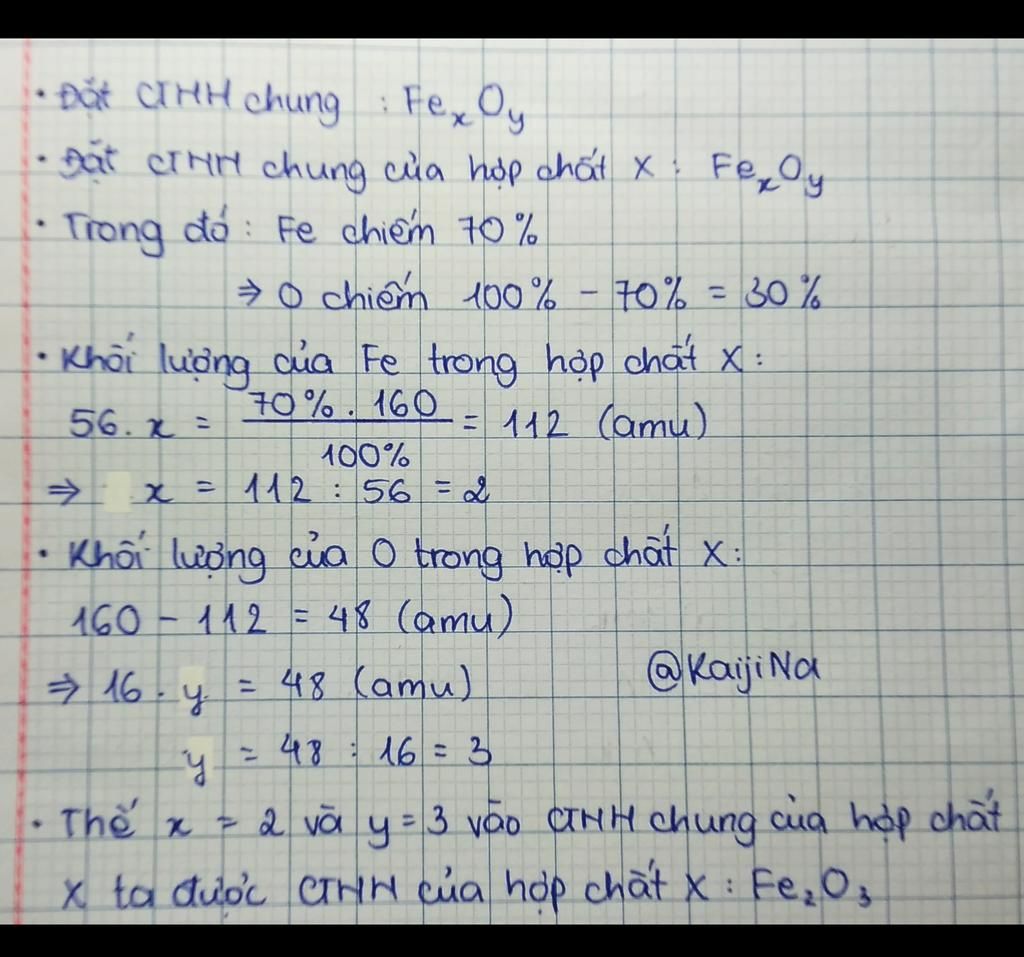 • Đặt CTHH chung : FeₓOᵧ
• Đặt CTHH chung của hợp chất X : FeₓOᵧ
• Trong đó : Fe chiếm 70%
⇒ O chiếm 100% - 70% = 30%
• Khối lượng của Fe trong hợp chất X :
56. x = 70% . 160 / 100% = 112 (amu)
⇒ x = 112 : 56 = 2
• Khối lượng của O trong hợp chất X :
160 - 112 = 48 (amu)
⇒ 16 . y = 48 (amu)
@KaijiNa
y = 48 : 16 = 3
• Thế x = 2 và y = 3 vào CTHH chung của hợp chất
X ta được CTHH của hợp chất X : Fe₂O₃